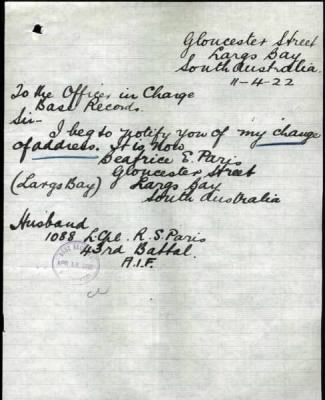 Gloucester Street
Largs Bay
South Australia.
11-4-22
To the Officer in Charge
Base Records.
Sir-
I beg to notify you of my change
of address. It is now
Beatrice E. Paris
Gloucester Street
(Largs Bay) Largs Bay
South Australia
Husband
1088 L.Cpl. R.S. Paris
43rd Battal.
A.I.F.